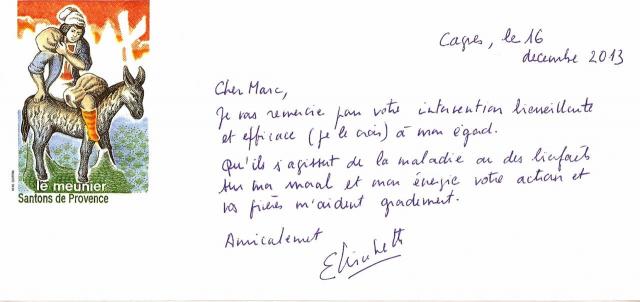 Cagnes, le 16
décembre 2013
Cher Marc,
Je vous remercie pour votre intervention bienveillante
et efficace (je le crois) à mon égard.
Qu'ils s'agissent de la maladie ou des bienfaits
sur ma moral et mon énergie votre action et
vos prières m'aident grandement.
Amicalement
Elisabeth
le meunier
Santons de Provence